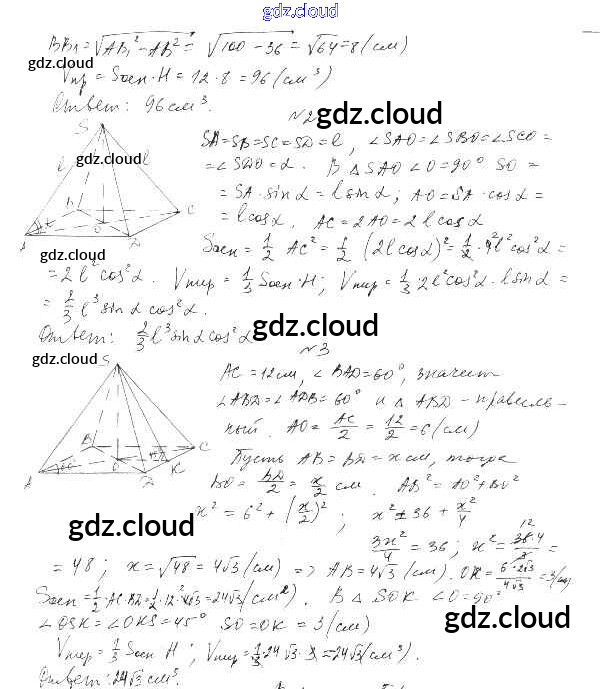 gdz.cloud
BB₁=√(AB₁²-AB²)= √(100-36)=√64=8(см)
gdz.cloud
Vпр = Sосн·H = 12·8=96(см³)
Ответ: 96см³.
gdz.cloud
N2
S
gdz.cloud
SA=SB=SC=SD=l, ∠SAO=∠SBO=∠SCO=
l
l
=∠SDO=α. В △SAO ∠O=90° SO=
= SA·sinα=lsinα; AO=SA·cosα=
B
C
O
A
D
=lcosα. AC=2AO=2lcosα
gdz.cloud
Sосн=1/2 AC²=1/2 (2lcosα)²=1/2·4l²cos²α=
=2l²cos²α. Vпир=1/3 Sосн·H; Vпир=1/3·2l²cos²α·lsinα=
=2/3 l³sinαcos²α.
Ответ: 2/3 l³sinαcos²α
gdz.cloud
N3
gdz.cloud
S
AC=12см, ∠BAD=60°, значит
∠ABD=∠ADB=60° и △ABD-правиль-
ный. AO=AC/2=12/2=6(см)
B
C
O
K
A
D
Пусть AB=BD=x см, тогда
BO=BD/2=x/2 см. AB²=AO²+BO²
gdz.cloud
x²=6²+(x/2)²; x²=36+x²/4
3x²/4=36; x²=36·4/3=
12
=48; x=√48=4√3(см) => AB=4√3(см). OK=6·2√3/4√3=3(см)
Sосн=1/2·AC·BD=1/2·12·4√3=24√3(см²). В △SOK ∠O=90°
∠OSK=∠OKS=45° SO=OK=3(см)
gdz.cloud
Vпир=1/3 Sосн H; Vпир=1/3·24√3·3=24√3(см³).
Ответ: 24√3 см³.